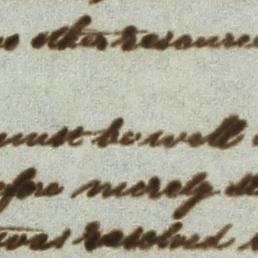 other resource
must be well
merely
was resolved